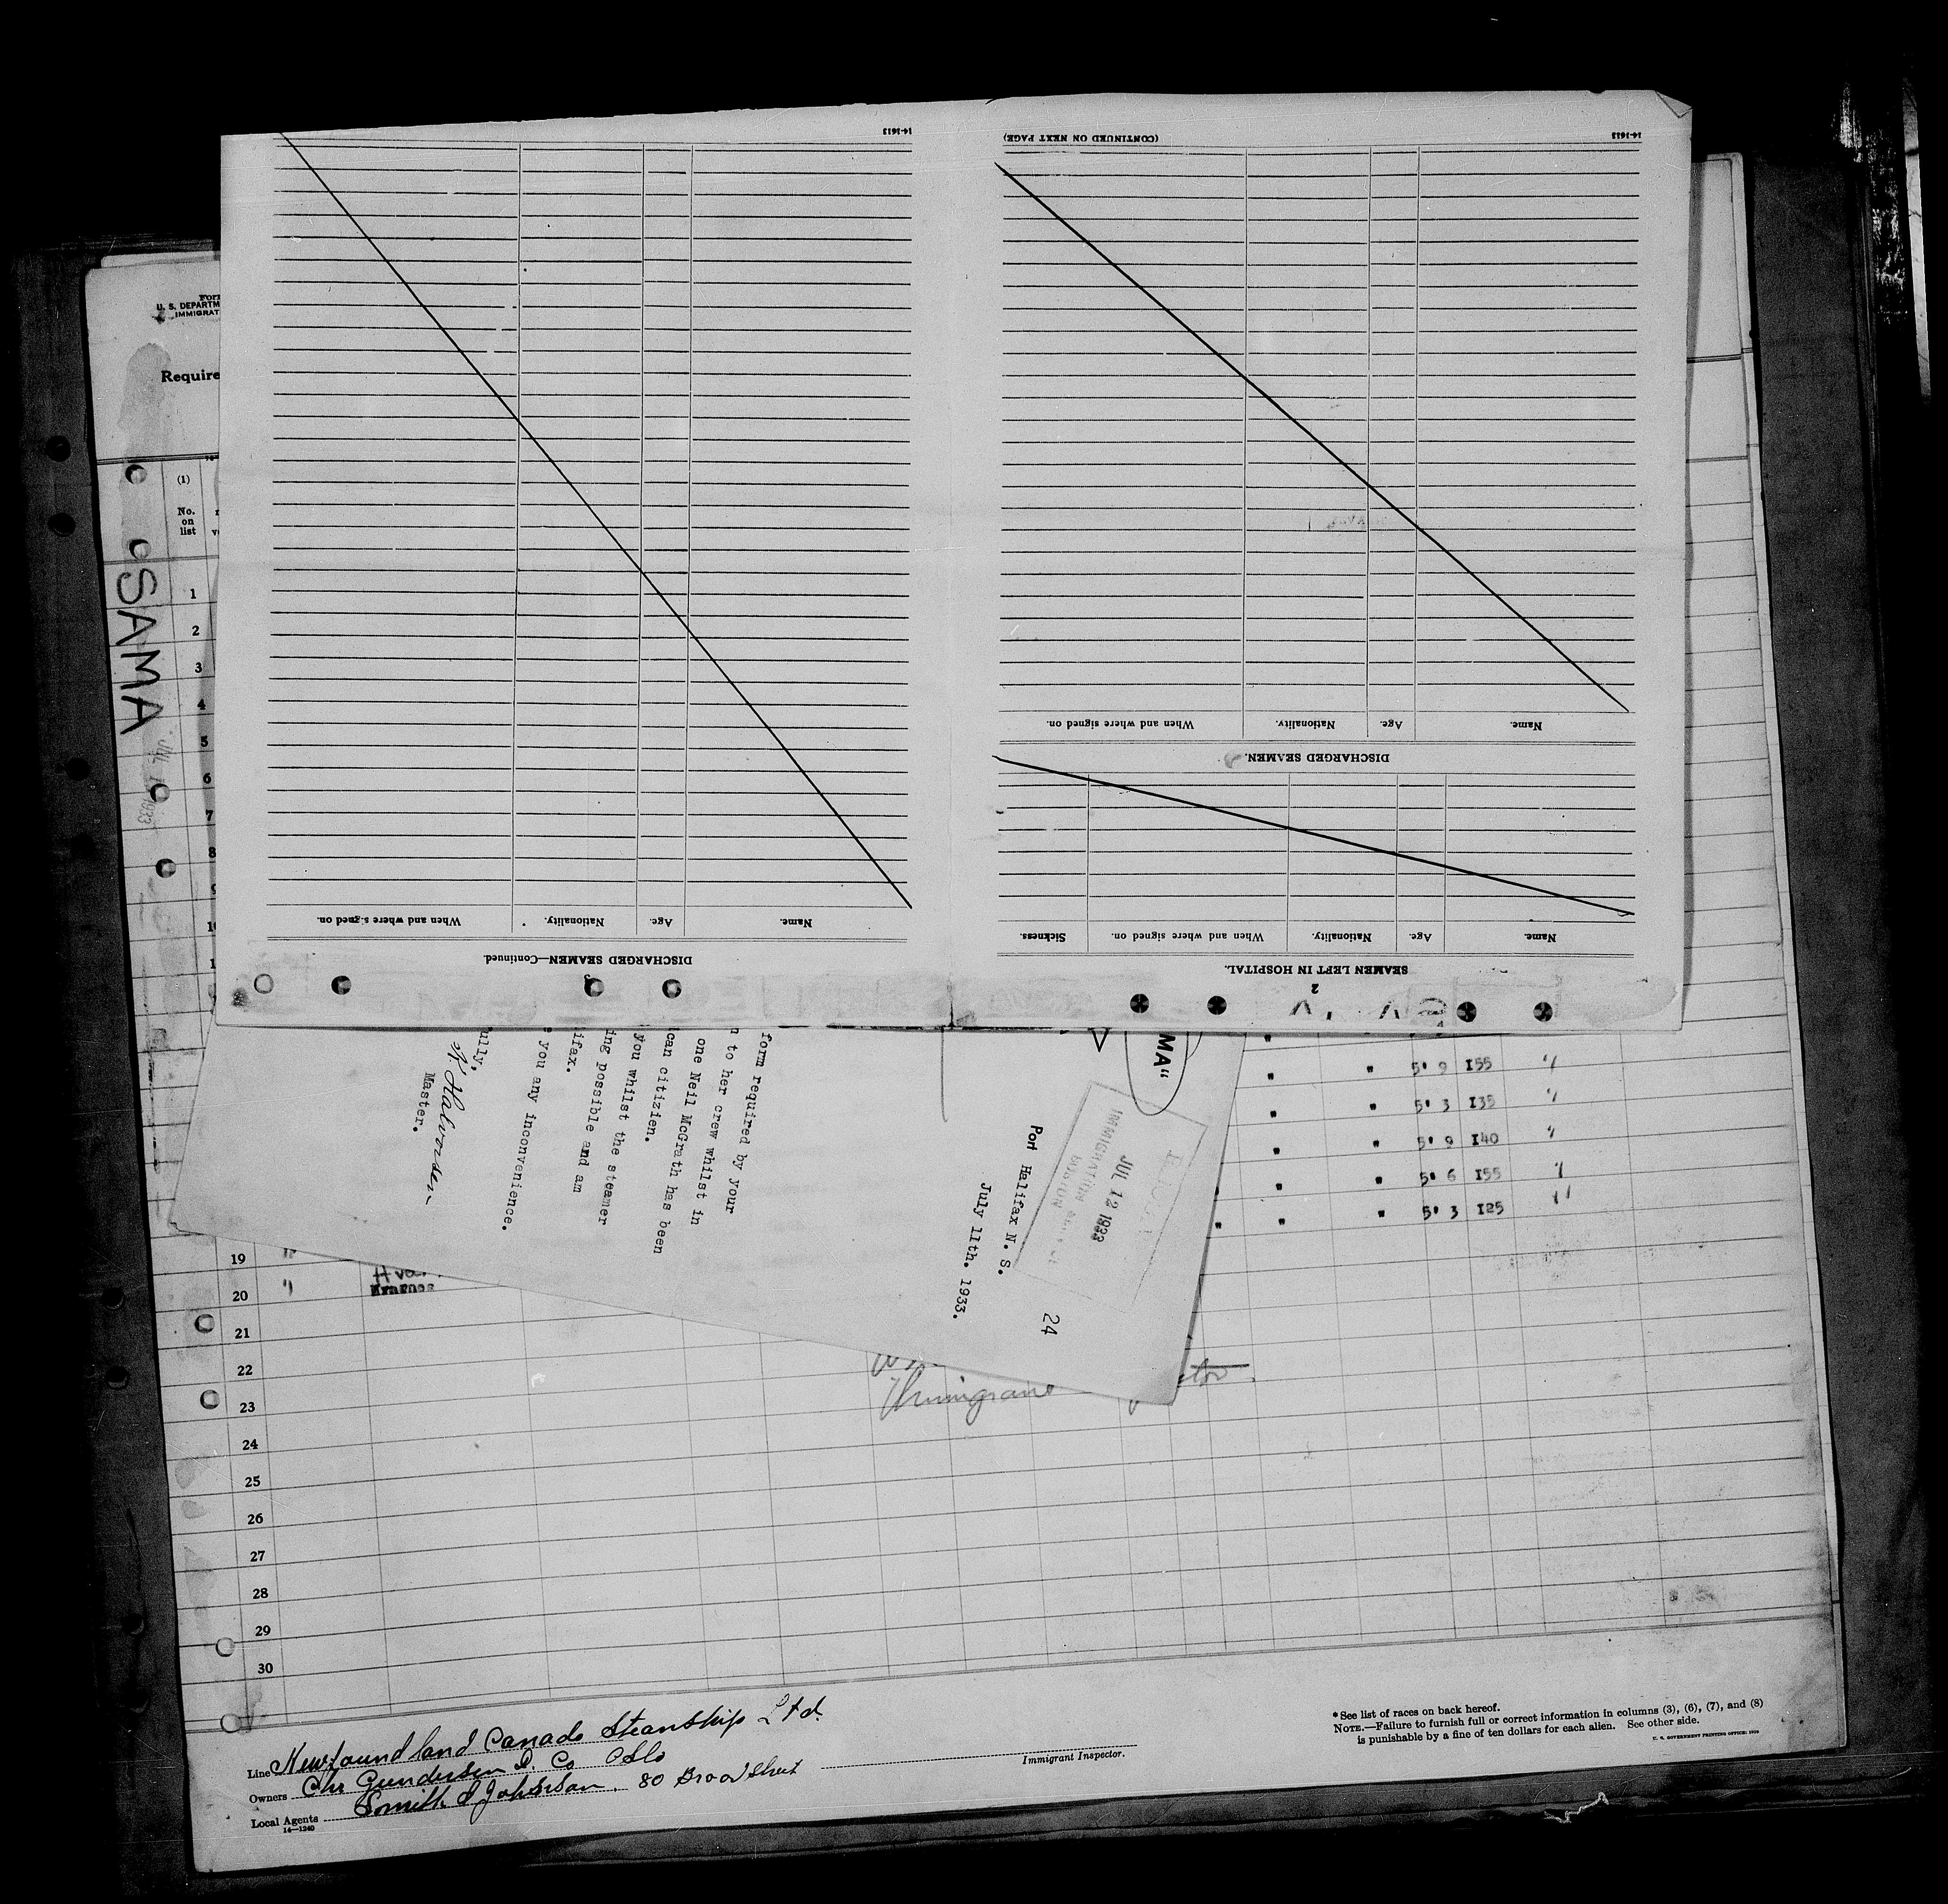 14-1613
DISCHARGED SEAMEN—Continued.
Name.
Age.
Nationality.
When and where signed on.
14-1613
2
SEAMEN LEFT IN HOSPITAL.
Name.
Age.
Nationality.
When and where signed on.
Sickness.
DISCHARGED SEAMEN.
Name.
Age.
Nationality.
When and where signed on.
(CONTINUED ON NEXT PAGE)
U. S. DEPARTM
IMMIGRAT
Require
(1)
No.
on
list
SAMA
1933
1
2
3
4
5
6
7
8
MA"
24
IMMIGRATION
JUL 12 1933
BOSTON
Port Halifax N. S.
July 11th. 1933.
form required by your
n to her crew whilst in
one Neil McGrath has been
can citizien.
you whilst the steamer
ing possible and am
ifax.
e you any inconvenience.
ully,
Halvorsen
Master.
5' 9 155
5' 3 135
5' 9 140
5' 6 155
5' 3 125
19
20
21
22
23
24
25
26
27
28
29
30
Line Newfoundland Canada Steamship Ltd.
Owners Chr Gundersen & Co Oslo
Local Agents Smith & Johnson. 80 Broad Street
14—1240
Immigrant Inspector.
* See list of races on back hereof.
NOTE.—Failure to furnish full or correct information in columns (3), (6), (7), and (8)
is punishable by a fine of ten dollars for each alien. See other side.